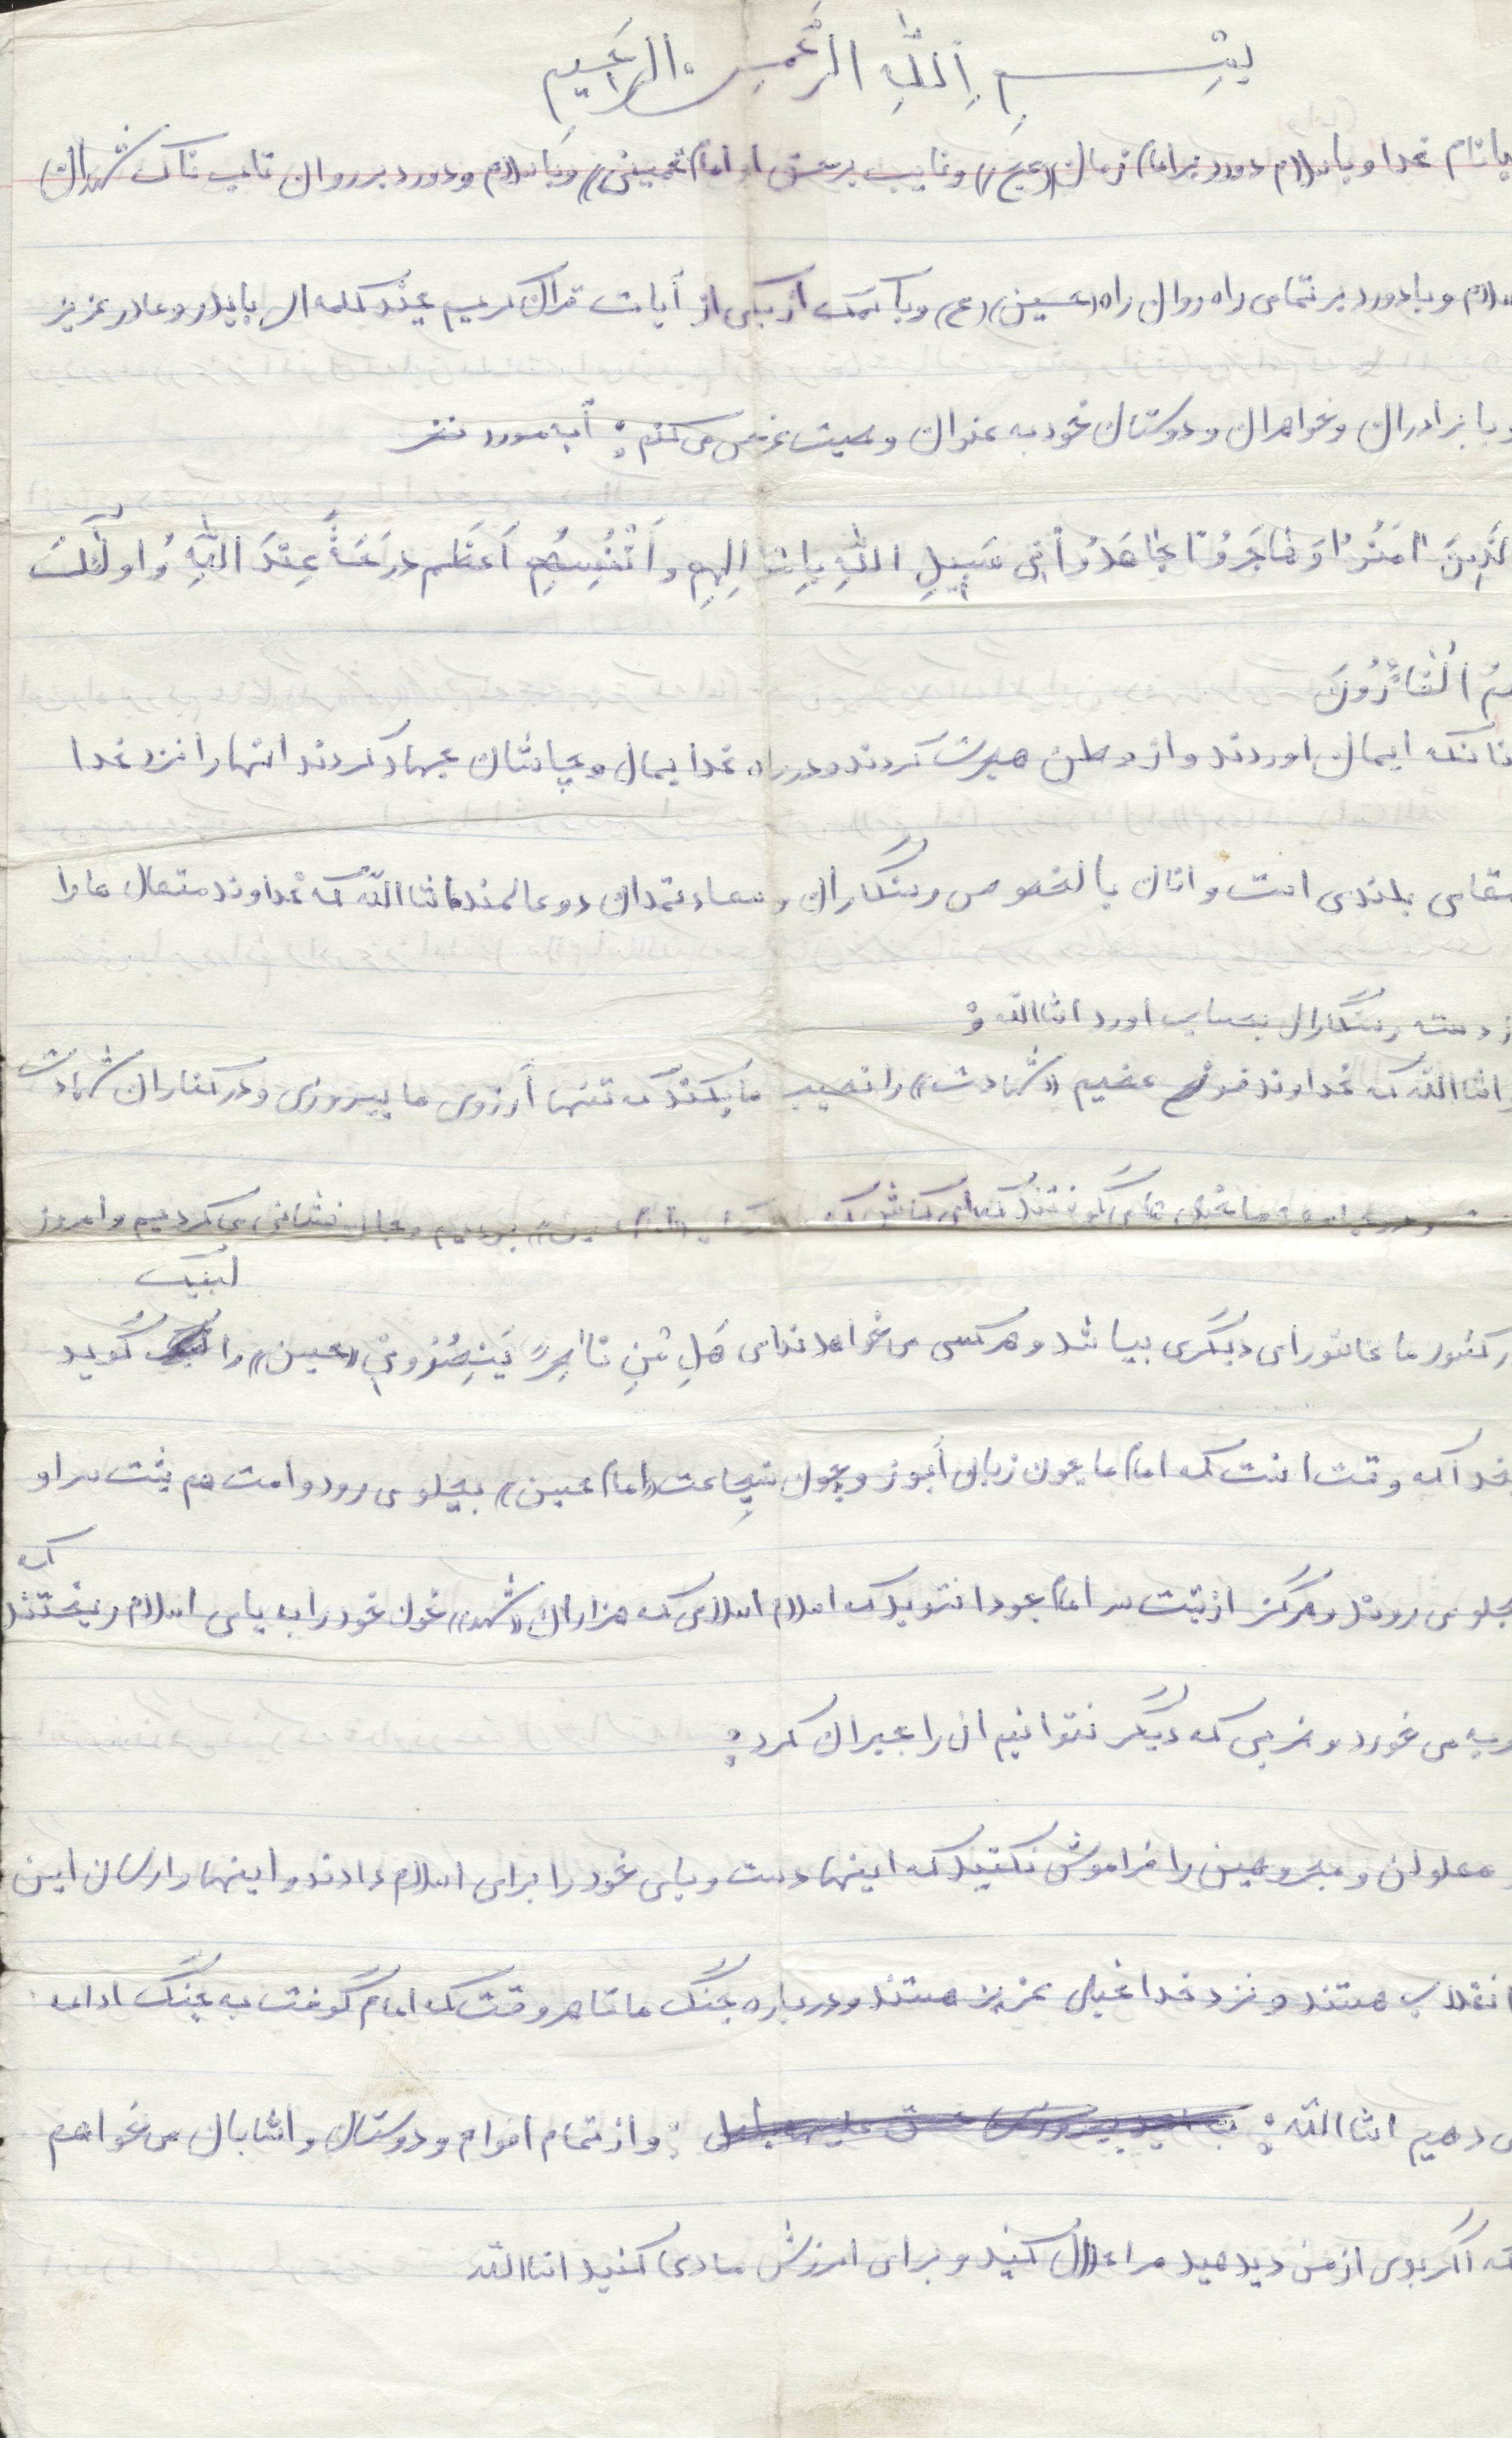 بِسْمِ اللّٰهِ الرَّحْمنِ الرَّحیم
بانام خدا و باسلام درود بر امام زمان (عج) و نایب برحق او امام خمینی)) و باسلام و درود بر روان تابناک شهدان
سلام و با درود بر تمامی راه روان راه (حسین) (ع) و با کمک از یکی از آیات قران کریم چند کلمه ای با پدر و مادر عزیز
و با برادران و خواهران و دوستان خود به عنوان وصیت عرض می کنم: آیه مورد نظر
لَّذِینَ امَنُوا وَ هاجَرُوا جاهَدُوا فِی سَبِیلِ اللّٰهِ بِامْوالِهِم وَ اَنْفُسِهِم اَعظَم دَرَجَةً عِنْدَ اللّٰهِ وُ اولٓئکَ
هُمُ الْفائِزُونَ
انانکه ایمان اوردند و از وطن هجرت کردند و در راه خدا بمال و جانشان جهاد کردند انها را نزد خدا
مقامی بلندی است و انان بالخصوص رستگاران و سعادتمدان دو عالمند انشااللّه که خداوند متعال مارا
از دسته رستگاران بحساب اورد انشااللّه و
انشااللّه که خداوند فوض عضیم ((شهادت)) را نصیب مابکند که تنها آرزوی ما پیروزی و در کنار ان شهادت
ما خیلی های گوفتند که ای کاش که امام حسین)) بودیم و جان فشانی می کردیم و امروز
لبیک
در کشور ما عاشورای دیگری بپا شد و هر کسی می خواهد ندای هَلِ مِنِ ناصِرً یَنصُرُونی ((حسین)) را گوید
بخدا که وقت انست که امام ما چون زبان آبوز و چون شجاعت ((امام حسین)) بجلو می رود و امت هم پشت سر او
بجلو می روند و هرگز از پشت سر امام جودا نشوید که اسلام اسلامی که هزاران ((شهد)) خون خود را به پای اسلام ریختند که
ضربه می خورد و ضربی که دیگر نتوانیم ان را جبران کرد:
و معلولان و مجروحین را فراموش نکنید که اینها دست و پای خود را برای اسلام دادند و اینها وارسان این
انقلاب هستند و نزد خدا خیلی عزیز هستند و درباره جنگ ما تا هر وقت که امام گوفت به جنگ ادامه
می دهیم انشااللّه: و از تمام اقوام و دوستان و اشنایان می خواهم
که اگر بدی از من دیدهید مرا حلال کنید و برای امرزش ما دعا کنید انشااللّه